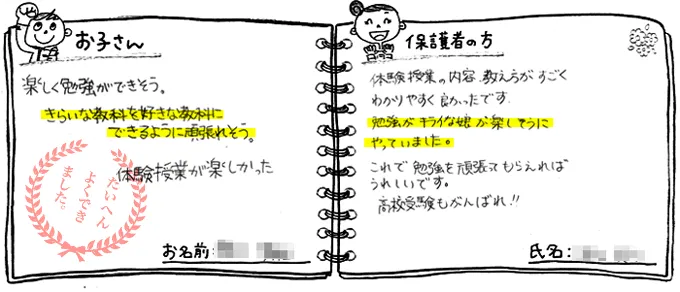 お子さん
楽しく勉強ができそう。
きらいな教科を好きな教科に
できるように頑張れそう。
体験授業が楽しかった
たいへん
よくでき
ました。
お名前:
保護者の方
体験授業の内容、教え方がすごく
わかりやすく良かったです.
勉強がキライな娘が楽しそうに
やっていました。
これで勉強を頑張てもらえれば
うれしいです。
高校受験もがんばれ!!
氏名: